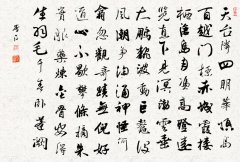 天台鄰四明華頂高
百越門標赤城霞樓
栖滄島月憑高登遠
覽直下見溟渤雲垂
大鵬翻波動巨鰲沒
風潮爭洶湧神怪何
翕忽觀奇跡無倪好
道心不歇攀條摘朱
實服藥鍊金骨安得
生羽毛千春卧蓬闕